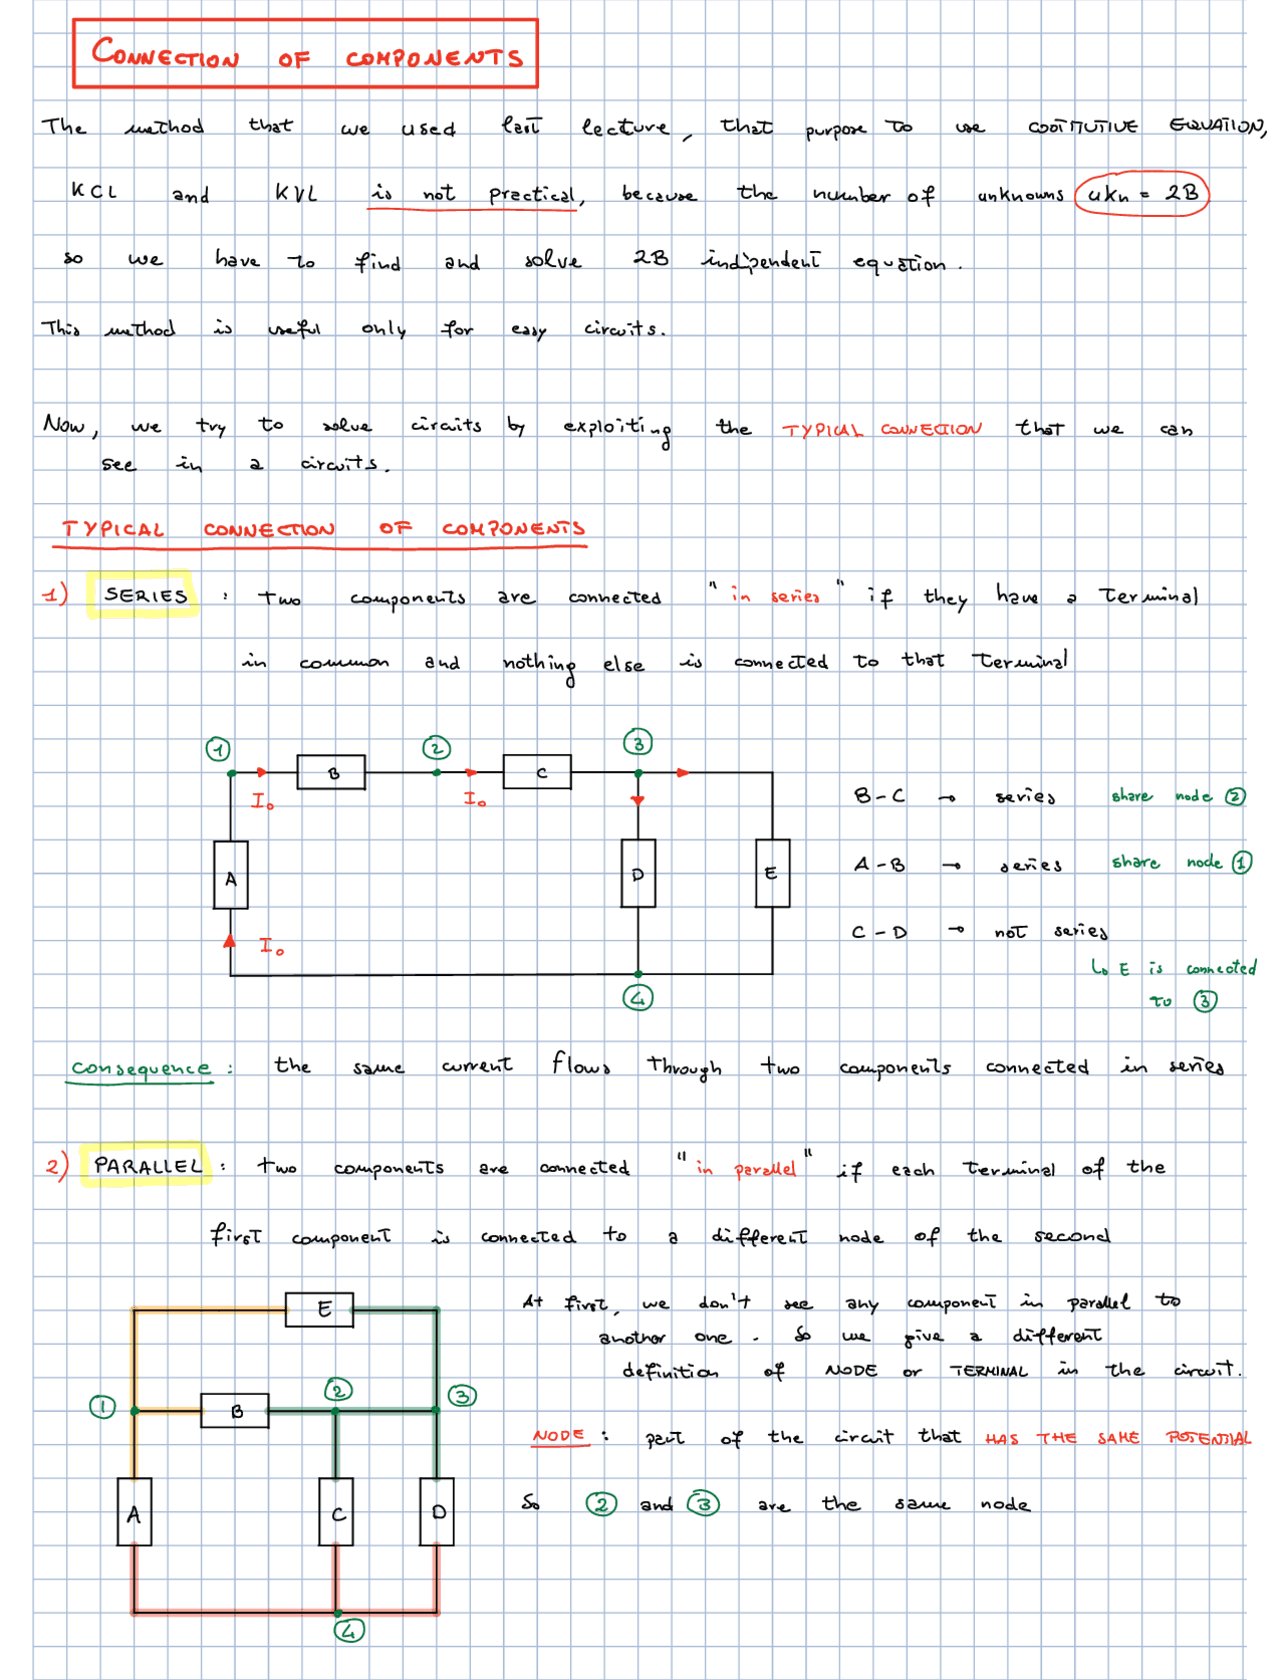 CONNECTION OF COMPONENTS
The method that we used last lecture, that purpose to use COSTITUTIVE EQUATION,
KCL and KVL is not practical, because the number of unknowns ukn = 2B
so we have to find and solve 2B indipendent equation.
This method is useful only for easy circuits.
Now, we try to solve circuits by exploiting the TYPICAL CONNECTION that we can
see in a circuits.
TYPICAL CONNECTION OF COMPONENTS
1) SERIES : two components are connected "in series" if they have a terminal
in common and nothing else is connected to that terminal
1 2 3
B C
I₀ I₀
B-C → series share node 2
A D E
A-B → series share node 1
C-D → not series
I₀
↳ E is connected
4
to 3
consequence : the same current flows through two components connected in series
2) PARALLEL : two components are connected "in parallel" if each terminal of the
first component is connected to a different node of the second
E
At first, we don't see any component in parallel to
another one. So we give a different
definition of NODE or TERMINAL in the circuit.
1 B 2 3
NODE : part of the circuit that HAS THE SAME POTENTIAL
So 2 and 3 are the same node
A C D
4